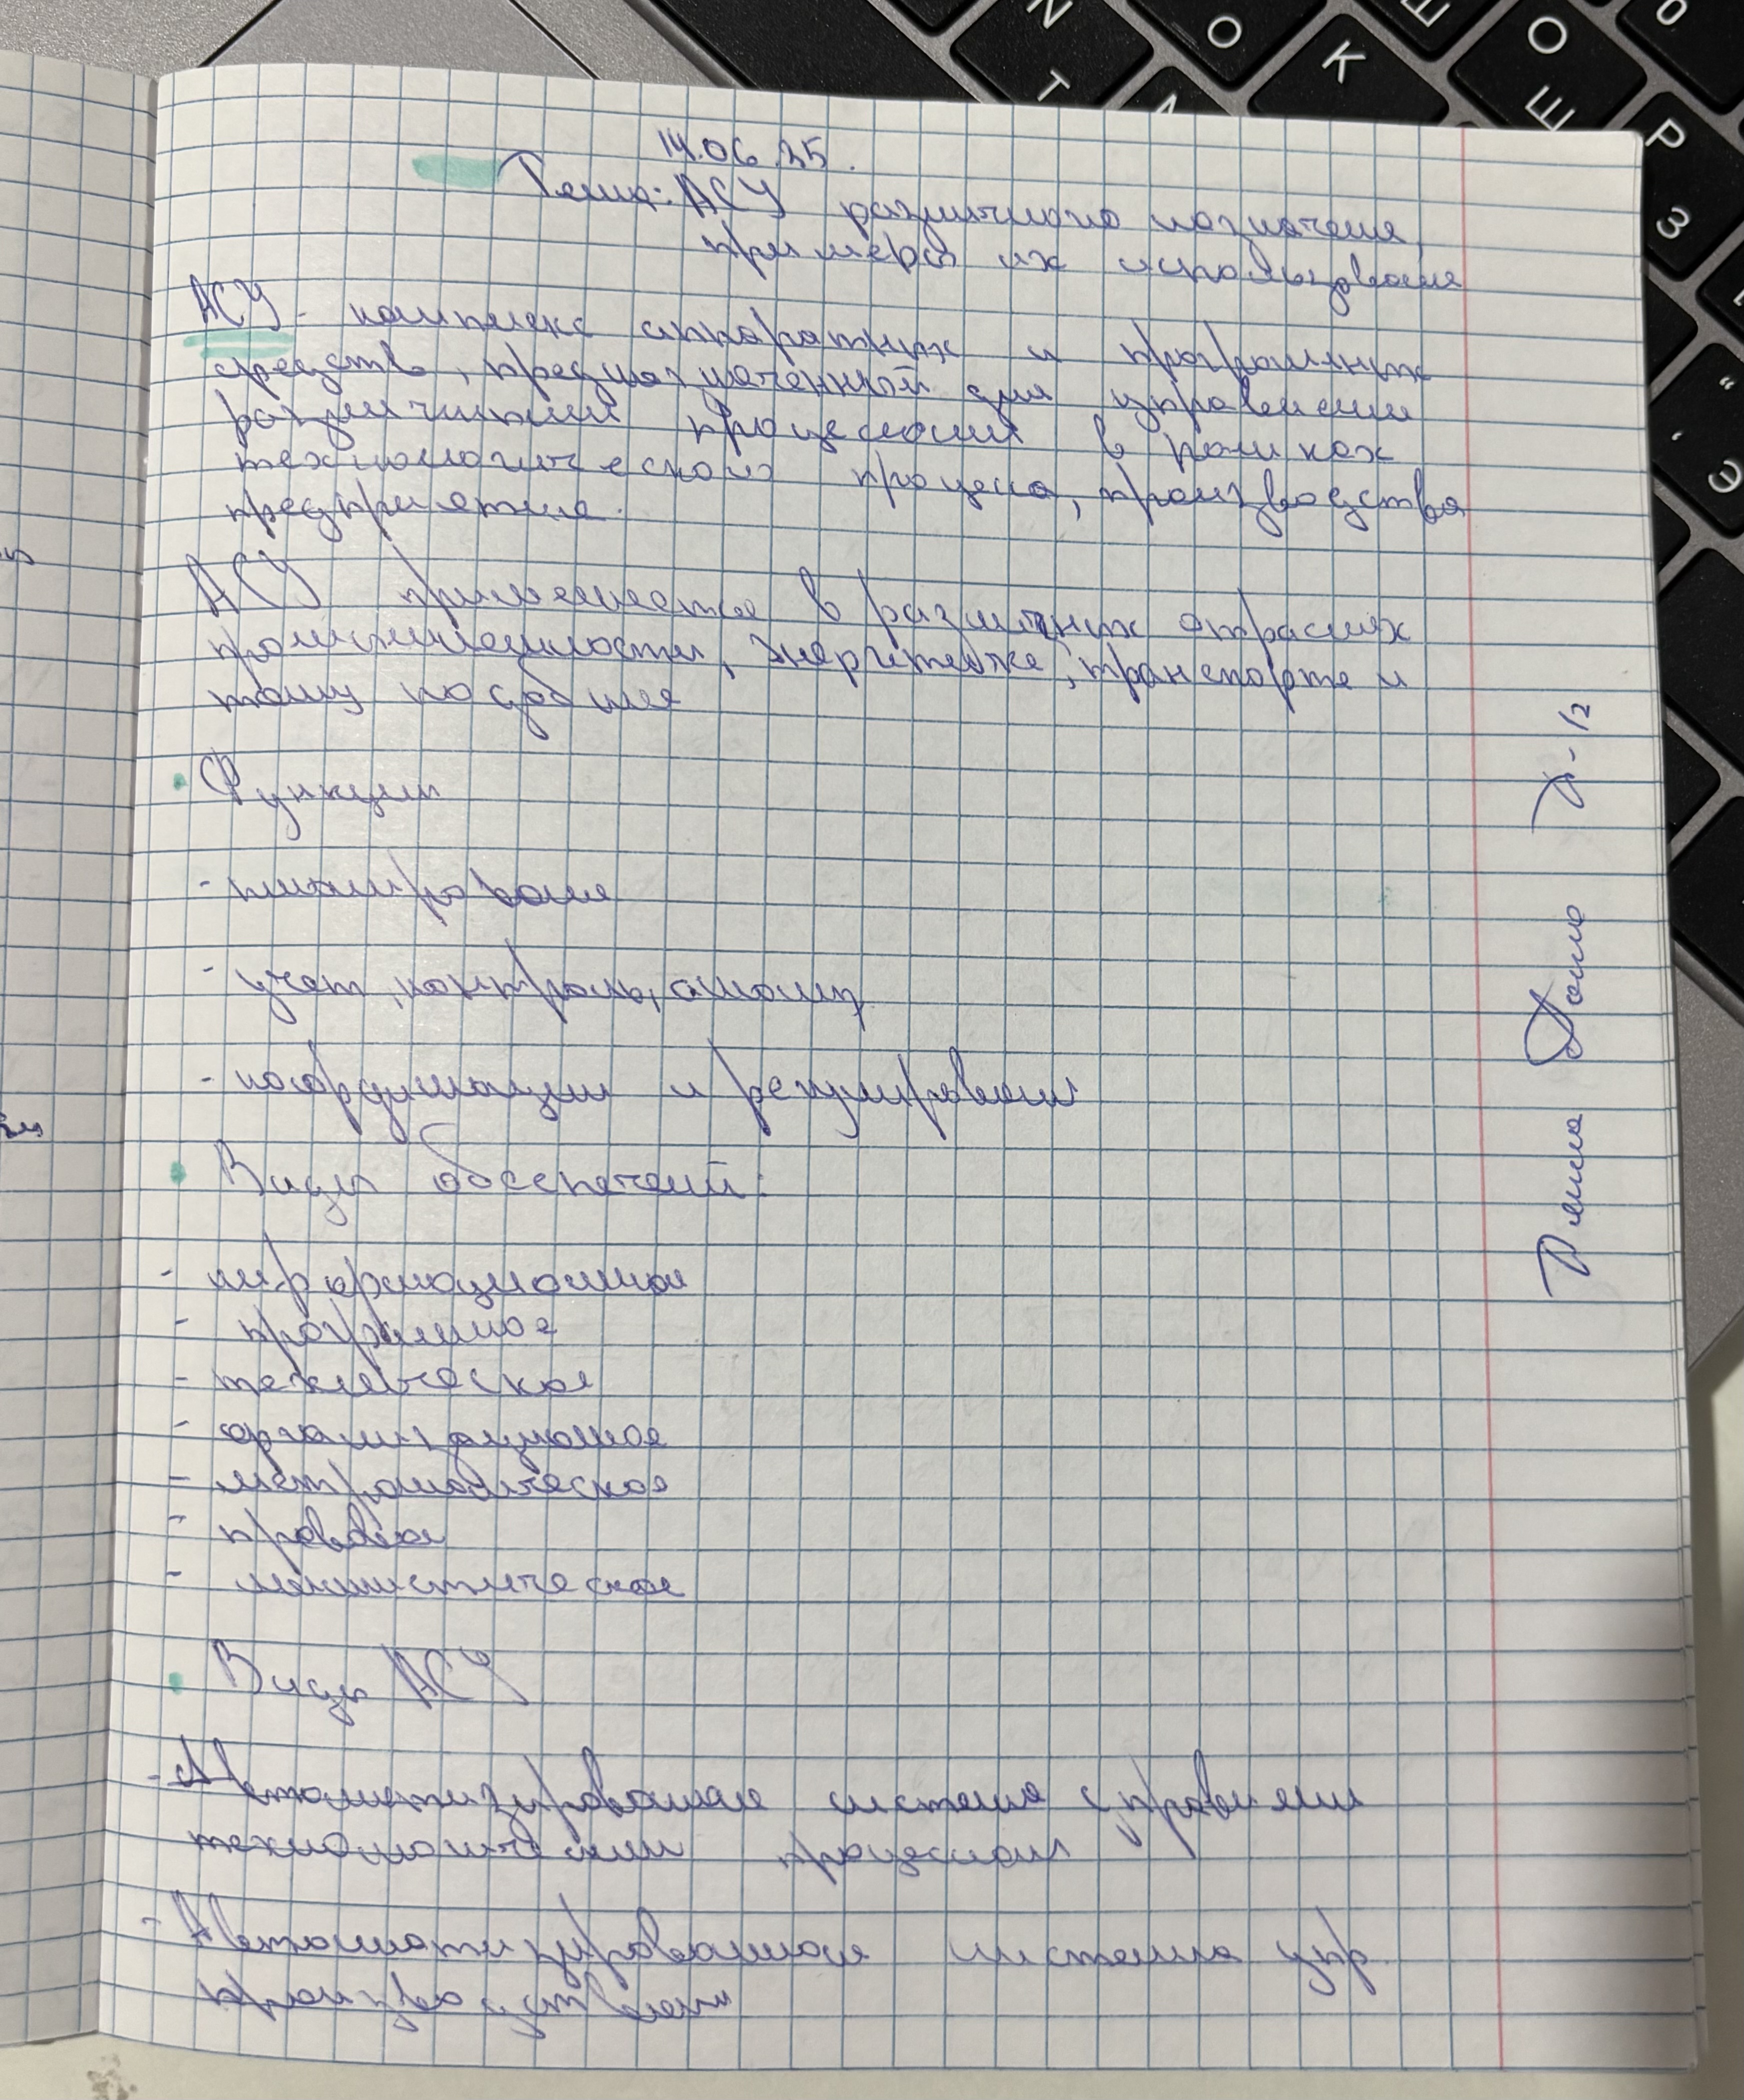 14.06.25.
Тема: АСУ различного назначения,
примеры их использования
АСУ - комплекс аппаратных и программных
средств, предназначенный для управлении
различными процессами в рамках
технологического процесса, производства
предприятия.
АСУ применяется в различных отраслях
промышленности, энергетике, транспорте и
тому подобные
Функции
- планирование
- учет, контроль, анализ
- координации и регулирование
Виды обеспечений:
- информационное
- програмное
- техническое
- организационное
- метрологическое
- правовое
- лингвистическое
Виды АСУ
- Автоматизированная система управления
технологическими процессами
- Автоматизированная система упр.
производством
Д-1/2
N
T
О
К
О
Ш
Р
З
Э